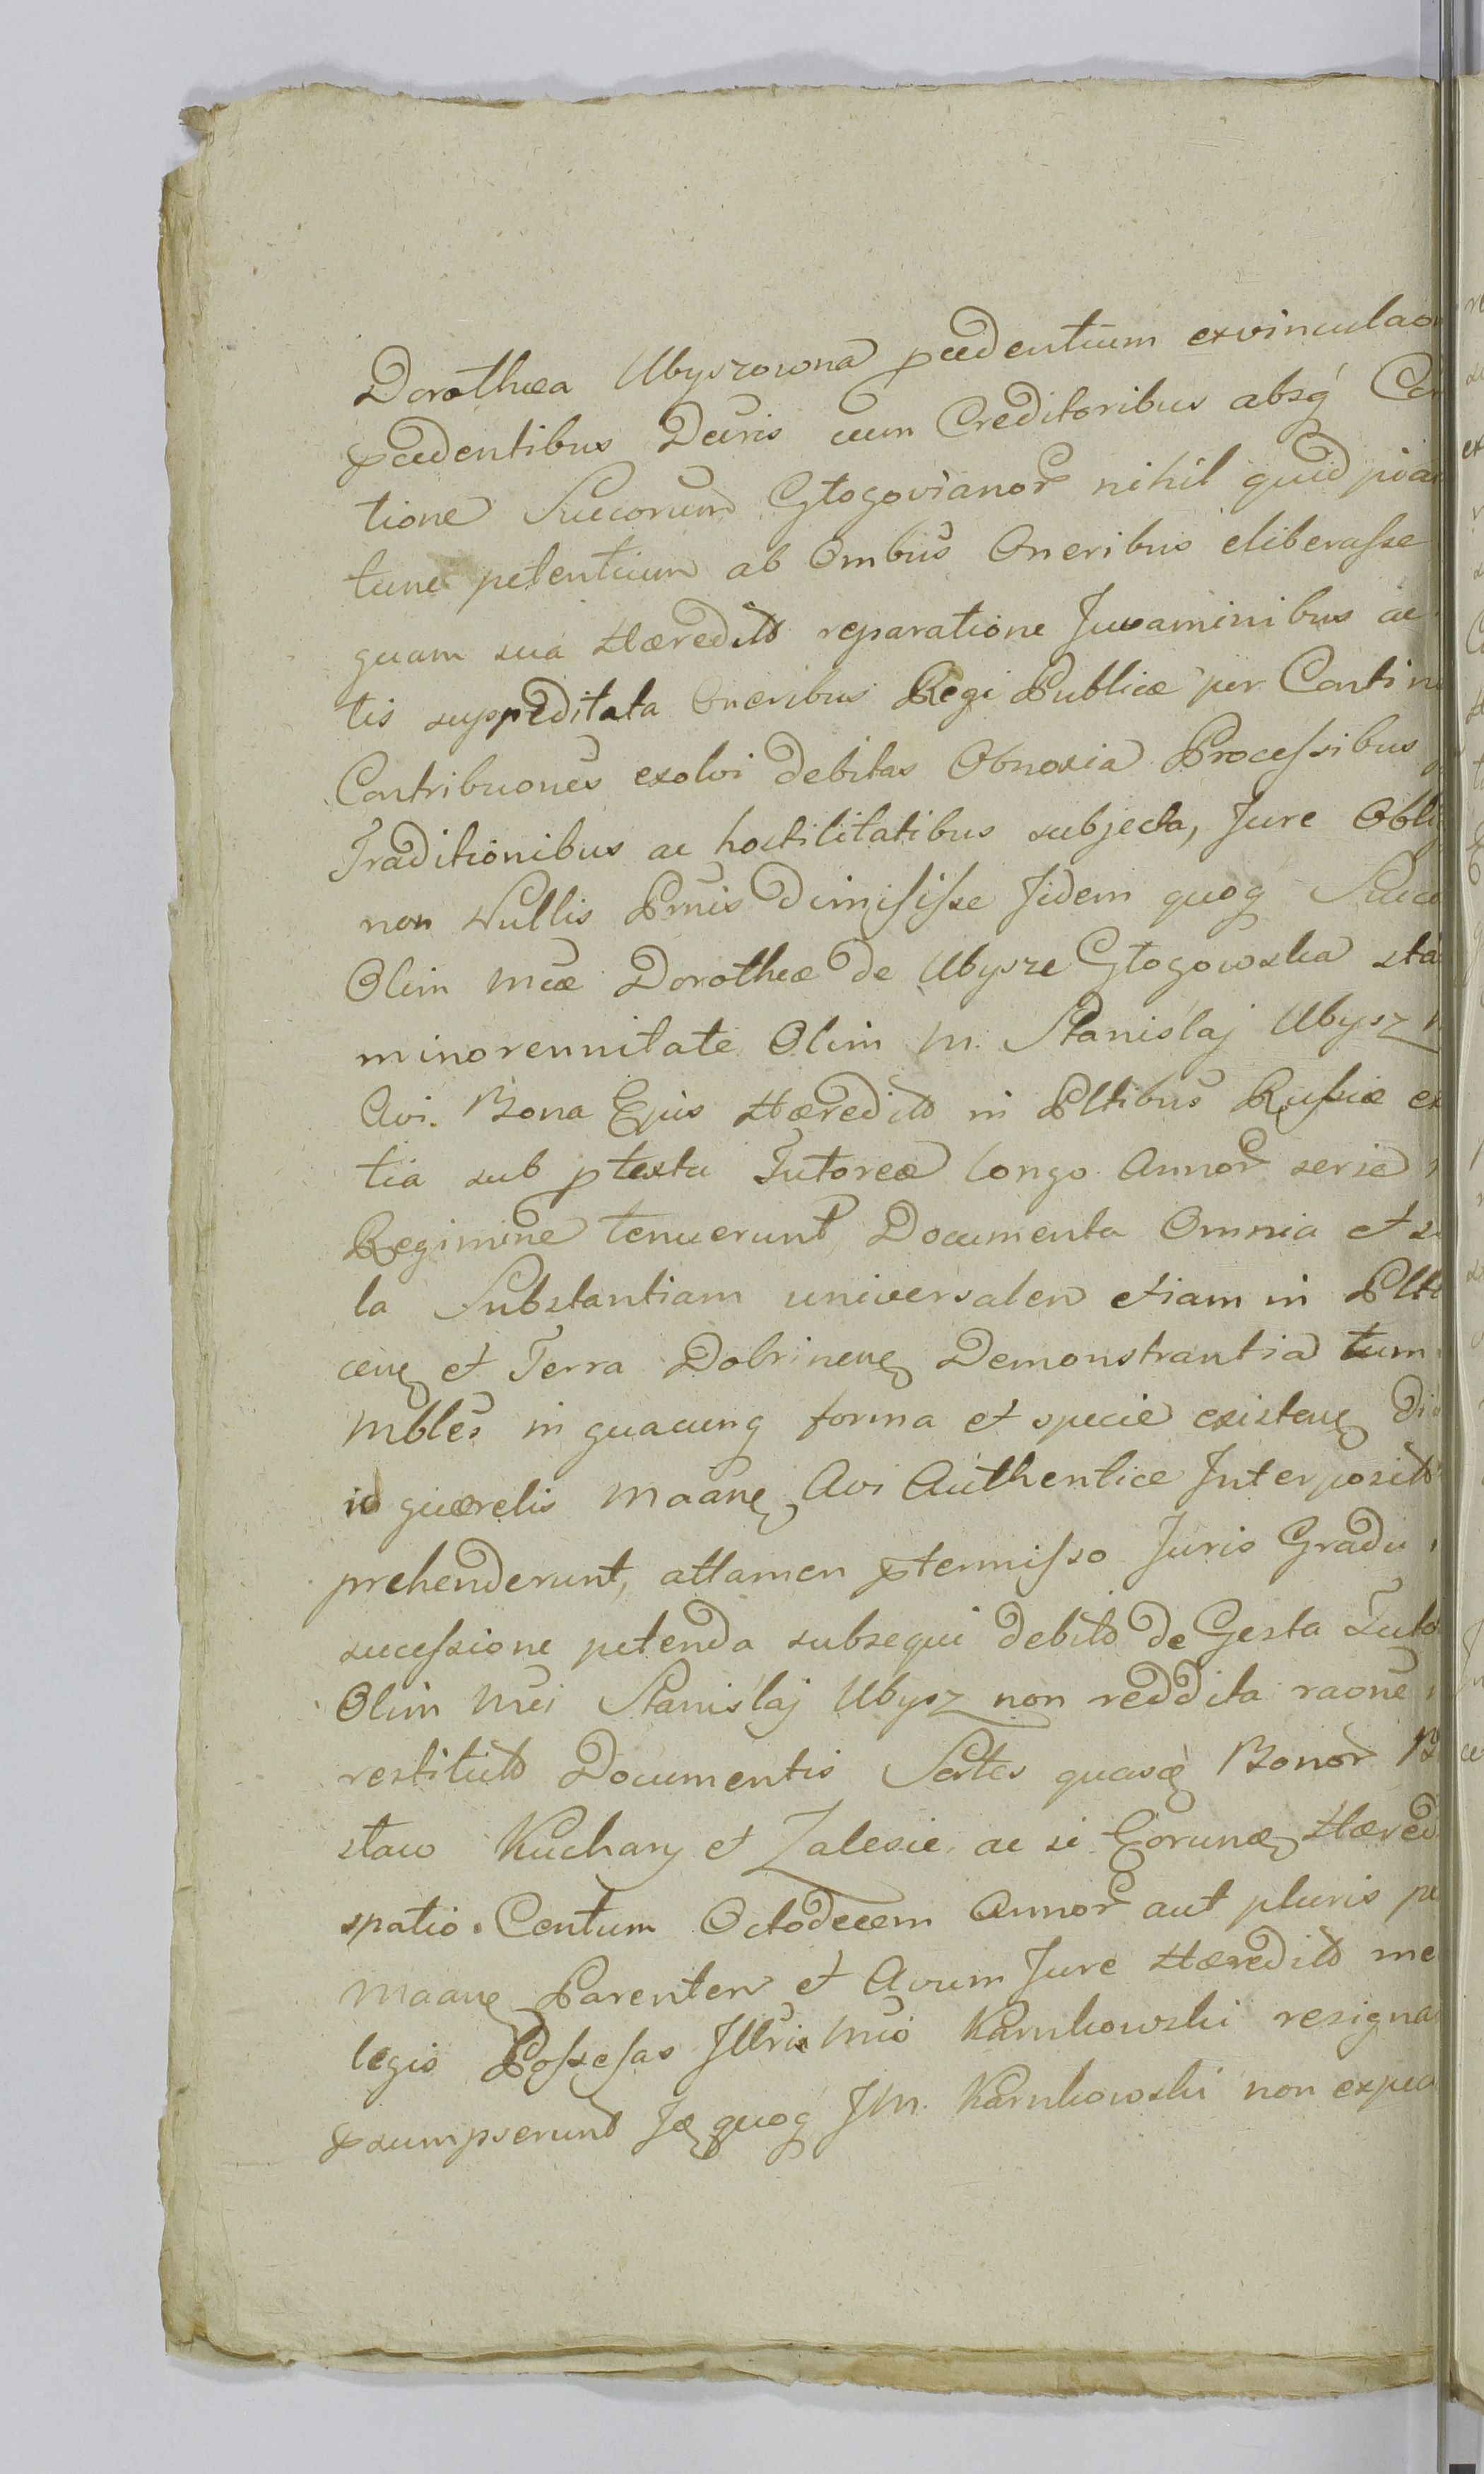 Dorothæa Ubyszowna pcedentium exvinculaon
pcedentibus Decris cum Creditoribus absq́ Con
tione Succorum Głogovianor nihil quid pior
tunc petentium ab Ombus Oneribus eliberasse
quam sua Hæredit reparatione Juvaminibus ac
tis suppeditata Oneribus Regi Publicæ per Contin
Contribuones exolvi debitas Obnoxia Processibus
Traditionibus ac hostilitatibus subjecta, Jure Obli
non Nullis Pmis Dimisisse Jidem quoq Succo
Olim Mcæ Dorotheæ de Ubysze Głogowska sta
minorennitate Olim M. Stanislaj Ubysz
Avi. Bona Ejus Hæredit in Pltibus Russiæ ex
tia sub ptextu Tutoreæ longo Annor serie
Regimine tenuerunt, Documenta Omnia et s
la Substantiam universalem etiam in Pltt
cen et Terra Dobrinen Demonstrantia tum
Mbles in quacunq forma et specie existen di
id quærelis Maan Avi Authentice Interposit
prehenderunt, attamen ptermisso Juris Gradu
successione petenda subsequi debito de Gesta Tuto
Olim Mci Stanislaj Ubysz non reddita raone
restitutt Documentis Sortes quasd Bonor B
staw Kuchary et Zalesie ac si Eorund Hæred
spatio. Centum Octodecem Annor aut pluris p
Maan Parentem et Avum Jure Hæredit me
legis Possesas Jllri Mco Karnkowski resigna
psumpserunt Jd quoq JM. Karnkowski non expec